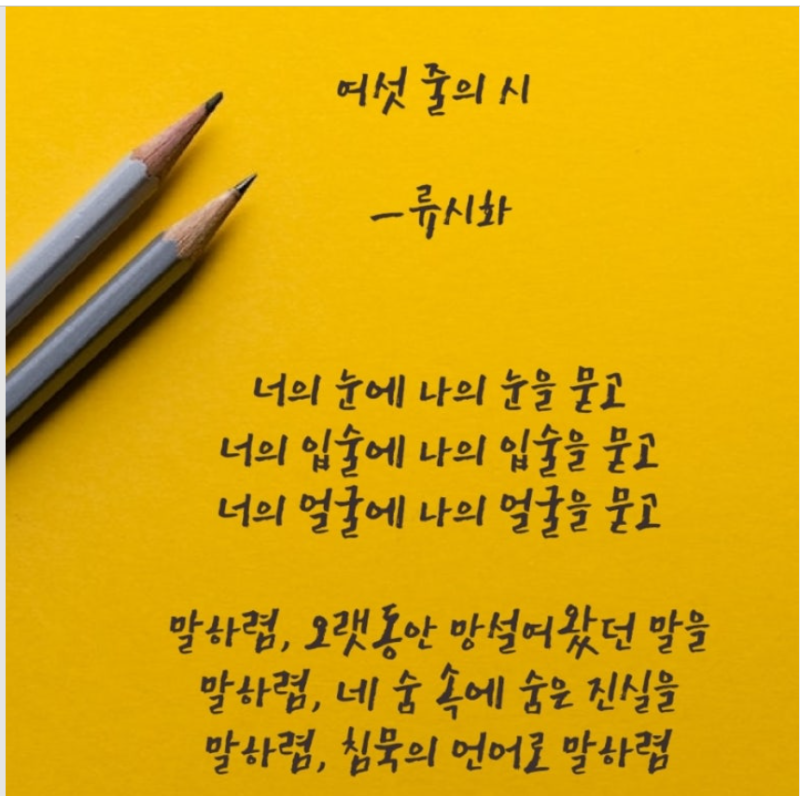 여섯 줄의 시
-류시화
너의 눈에 나의 눈을 묻고
너의 입술에 나의 입술을 묻고
너의 얼굴에 나의 얼굴을 묻고
말하렴, 오랫동안 망설여왔던 말을
말하렴, 네 숨 속에 숨은 진실을
말하렴, 침묵의 언어로 말하렴